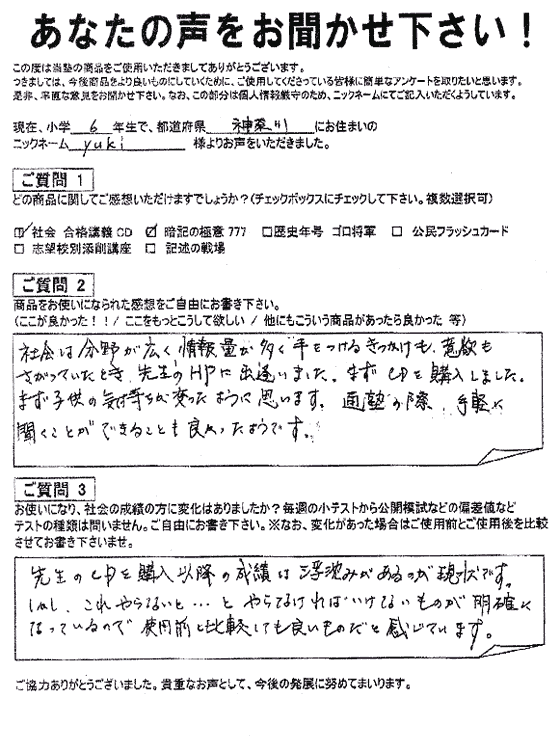 あなたの声をお聞かせ下さい！
この度は当塾の商品をご使用いただきましてありがとうございます。
つきましては、今後商品をより良いものにしていくために、ご使用してくださっている皆様に簡単なアンケートを取りたいと思います。
是非、率直な意見をお聞かせ下さい。なお、この部分は個人情報厳守のため、ニックネームにてご記入いただくようしています。
現在、小学 6 年生で、都道府県 神奈川 にお住まいの
ニックネーム yuki 様よりお声をいただきました。
ご質問 1
どの商品に関してご感想いただけますでしょうか？(チェックボックスにチェックして下さい。複数選択可)
☑社会 合格講義CD ☑ 暗記の極意777 □歴史年号 ゴロ将軍 □ 公民フラッシュカード
□ 志望校別添削講座 □ 記述の戦場
ご質問 2
商品をお使いになられた感想をご自由にお書き下さい。
(ここが良かった！！/ ここをもっとこうして欲しい / 他にもこういう商品があったら良かった 等)
社会は分野が広く情報量が多く手をつけるきっかけも、意欲も
さがっていたとき、先生のHPに出逢いました。まずCDを購入しました。
まず子供の気持ちが変ったように思います。通塾の際、手軽に
聞くことができることも良かったようです。
ご質問 3
お使いになり、社会の成績の方に変化はありましたか？毎週の小テストから公開模試などの偏差値など
テストの種類は問いません。ご自由にお書き下さい。※なお、変化があった場合はご使用前とご使用後を比較
させてお書き下さいませ。
先生のCDを購入以降の成績は浮沈みがあるのが現状です。
しかし、これやらないと…とやらなければいけないものが明確に
なっているので使用前と比較しても良いものだと感じています。
ご協力ありがとうございました。貴重なお声として、今後の発展に努めてまいります。